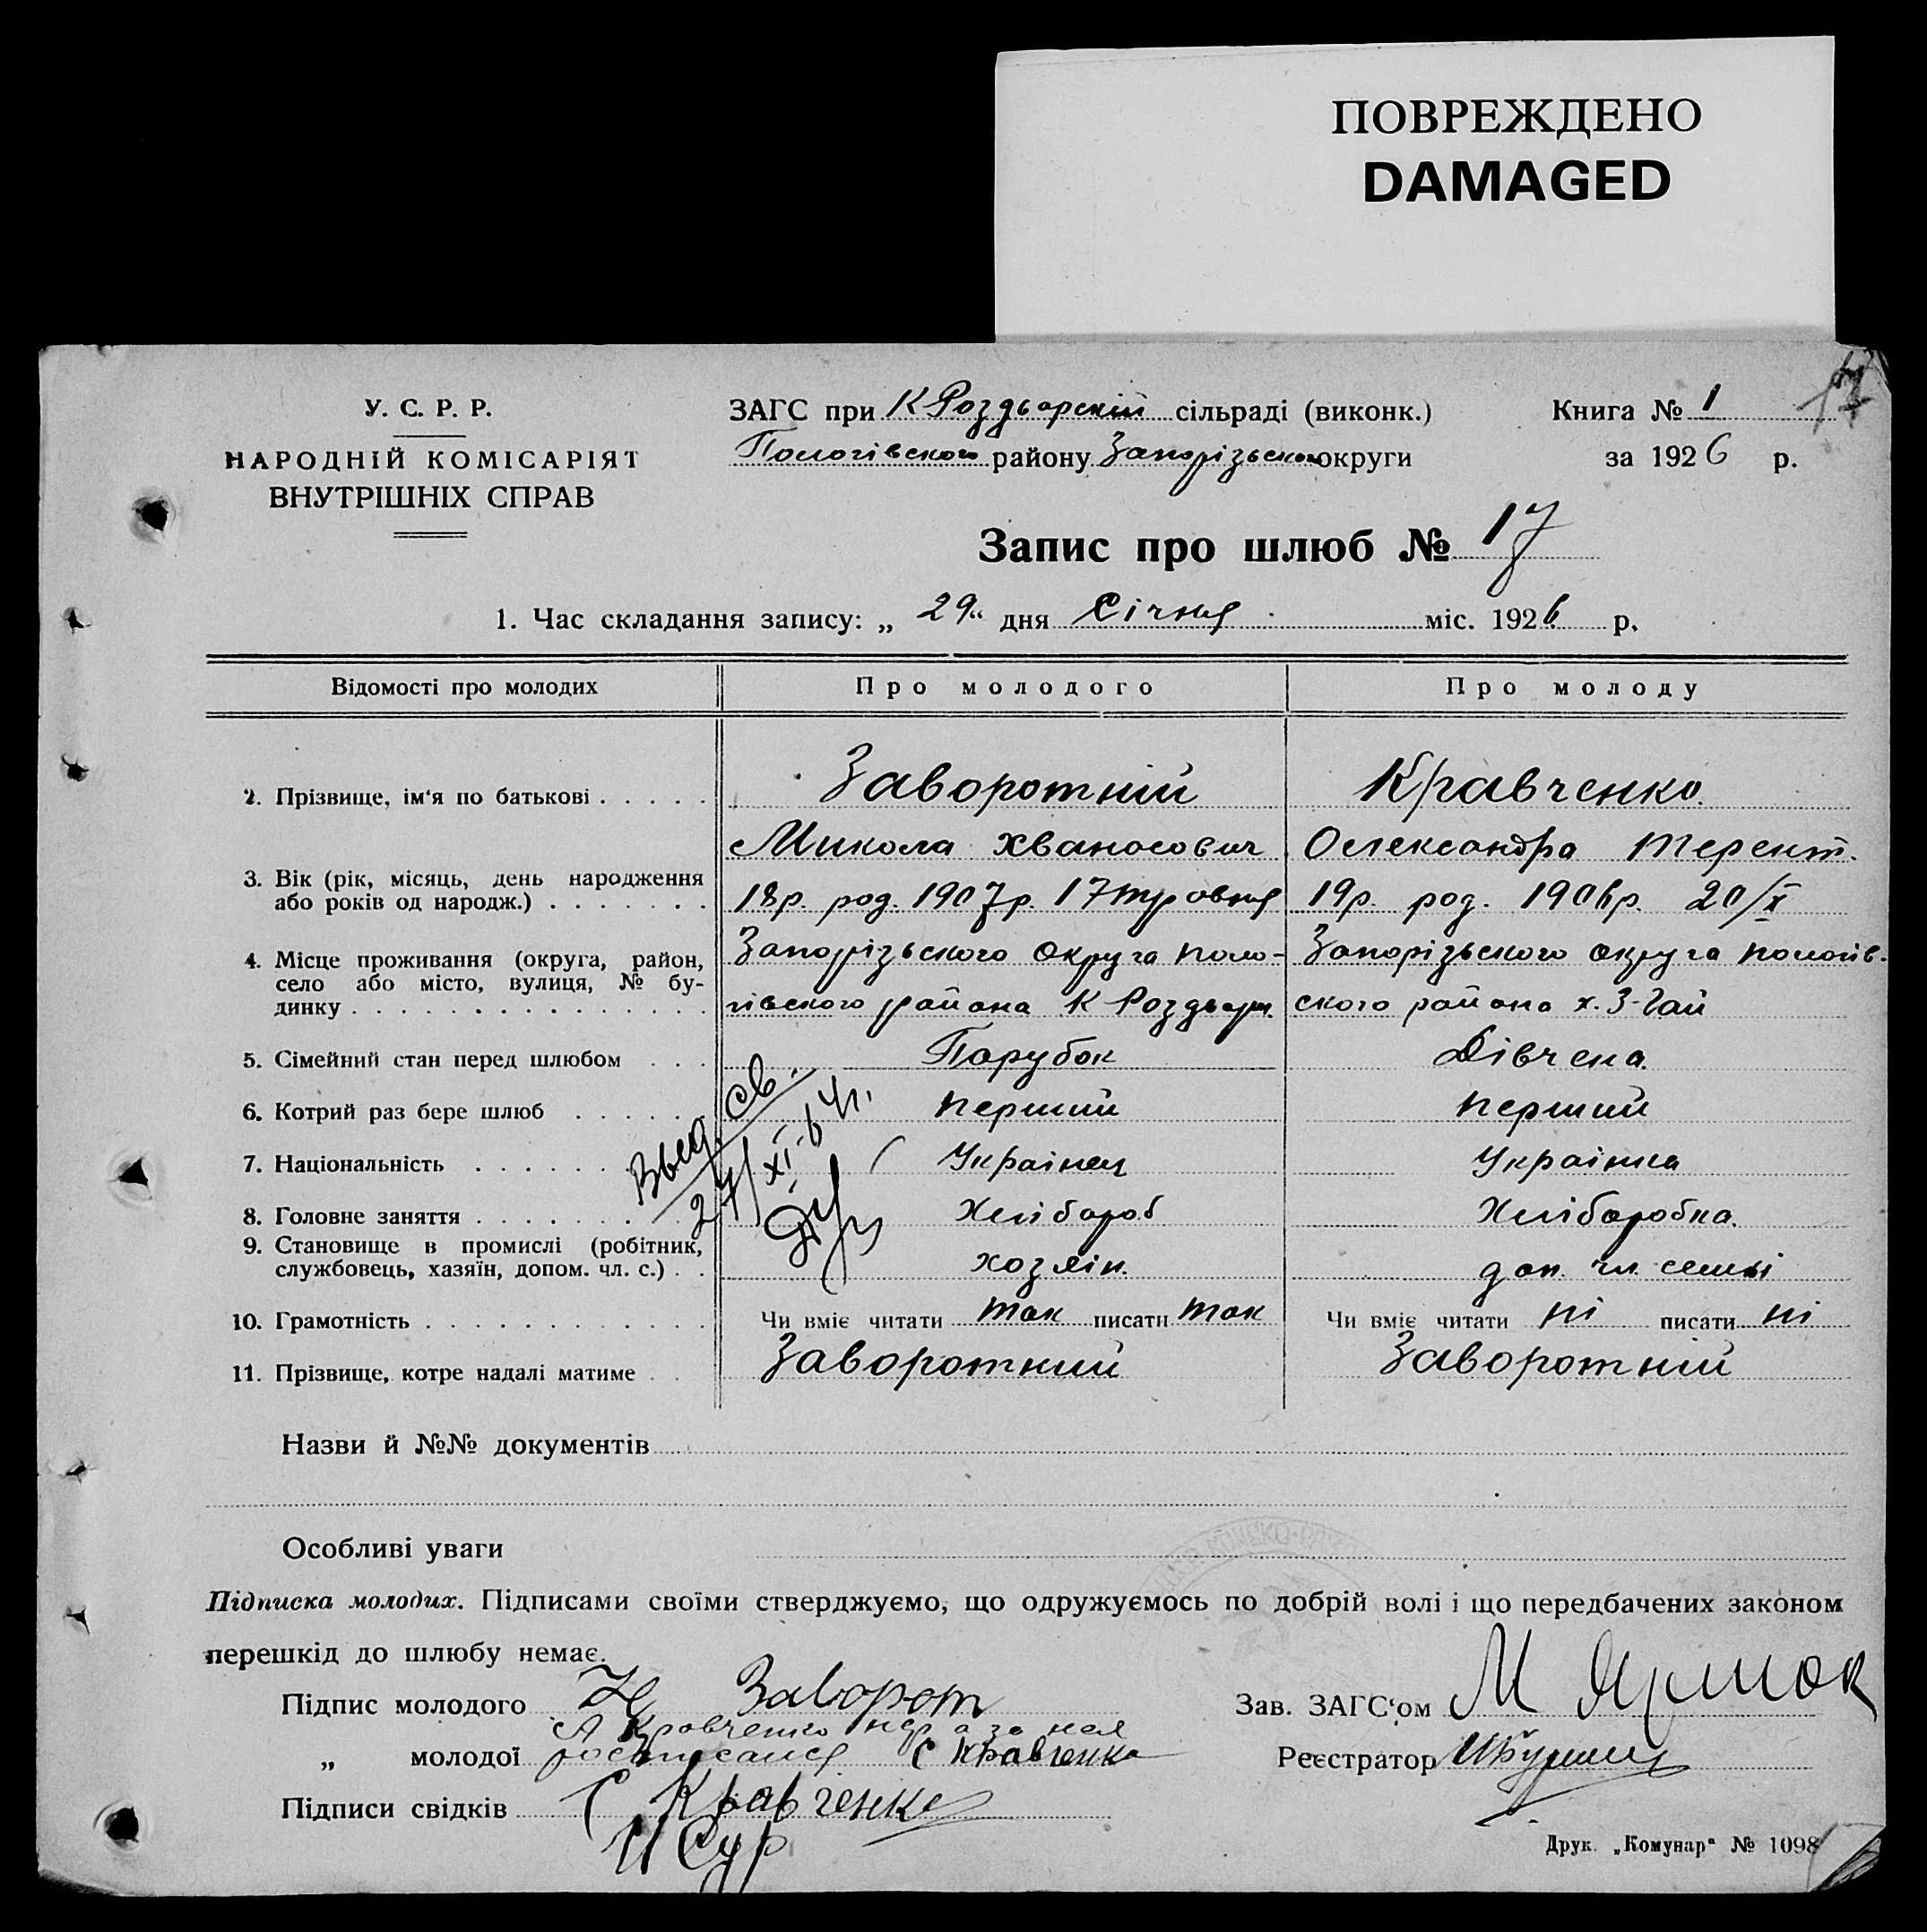 ПОВРЕЖДЕНО
DAMAGED
17
У. С. Р. Р.
НАРОДНІЙ КОМІСАРІЯТ
ВНУТРІШНІХ СПРАВ
ЗАГС при К Роздьорскій сільраді (виконк.)
Пологівского району Запорізьского округи
Книга № 1
за 1926 р.
Запис про шлюб № 17
1. Час складання запису: „ 29 “ дня Січня міс. 1926 р.
Відомості про молодих Про молодого Про молоду
2. Прізвище, ім‘я по батькові . . . . . Заворотній Кравченко
Микола Хванасович Олександра Терент.
3. Вік (рік, місяць, день народження
або років од народж.) . . . . . . . 18р. род. 1907р. 17 тровня 19р. род. 1906р. 20/X
4. Місце проживання (округа, район, Запорізьского округа Поло- Запорізьского округа Пологів-
село або місто, вулиця, № бу-
динку . . . . . . . . . . . . . . . . гівского района К Роздьори ского района х. З-Гай
5. Сімейний стан перед шлюбом . . . Парубок Дівчена.
6. Котрий раз бере шлюб . . . . . . перший перший
7. Національність . . . . . . Українец Українка
8. Головне заняття . . . . . . . . Хлібороб Хліборобка.
9. Становище в промислі (робітник,
службовець, хазяїн, допом. чл. с.) . . хозяін. доп. чл. семьі
10. Грамотність . . . . . . . . . . . . Чи вміє читати так писати так Чи вміє читати ні писати ні
11. Прізвище, котре надалі матиме . . Заворотний Заворотній
св.
24/XI-64г.
Назви й №№ документів
Особливі уваги
Підписка молодих. Підписами своїми стверджуємо, що одружуємось по добрій волі і що передбачених законом
перешкід до шлюбу немає.
Підпис молодого Заворот
А Кравченко нгр а за ней
„ молодої росписался С Кравченко
Підписи свідків С Кравченко
И Сур
Зав. ЗАГС‘ом М Ярмок
Реєстратор
Друк. „Комунар“ № 1098